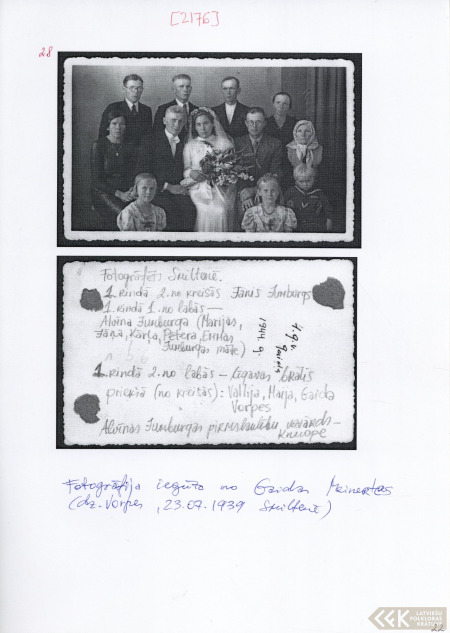 [2176]
28
Fotografēts Smiltenē.
1. rindā 2. no kreisās Jānis Jumburgs
1. rindā 1. no labās –
Alvīna Jumburga (Marijas,
Jāņa, Kārļa, Pētera, Emmas
Jumburgas māte)
1944. g.
1. rindā 2. no labās – Līgavas brālis
priekšā (no kreisās): Vallija, Marja, Gaida
Vorpes
Alvīnas Jumburgas pirmslaulību uzvārds –
Fotogrāfija iegūta no Gaidas Meinertes
(dz. Vorpes, 23.07.1939 Smiltenē)
LATVIEŠU
FOLKLORAS
KRĀTUVE
22